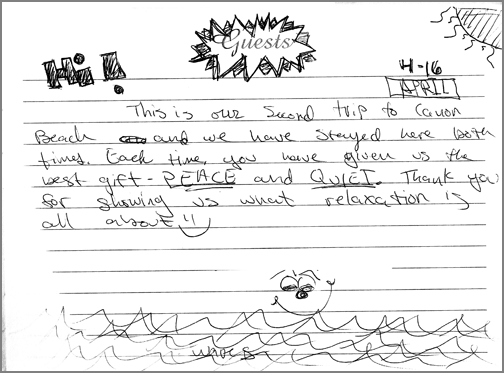 Guests
Hi!
4-16
APRIL
This is our Second trip to Canon
Beach and we have stayed here both
times. Each time, you have given us the
best gift - PEACE and QUIET. Thank you
for showing us what relaxation is
all about!!
waves